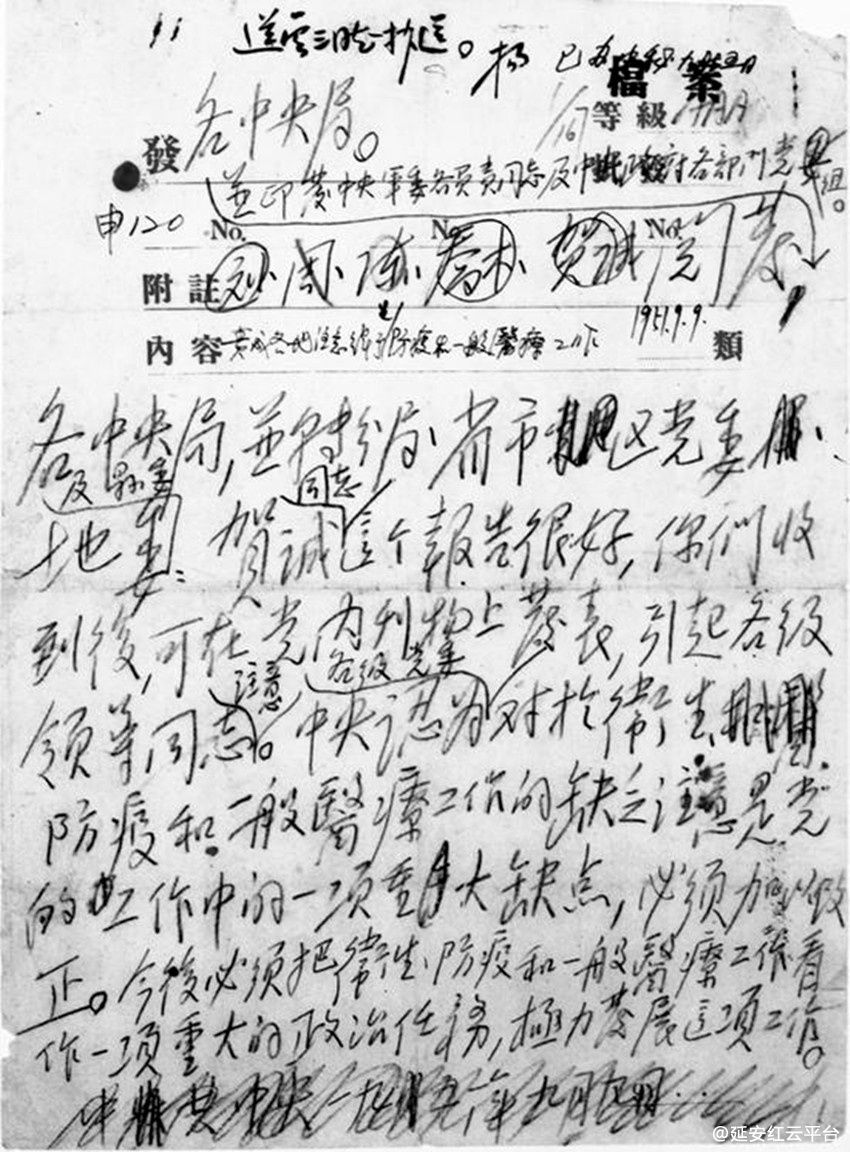 送雲三時一抄送。 楊
檔案
各中央局。
等級
發
並印發中央軍委各負責同志及中央政府各部門党組。
申120 No. No. No.
附註 刘、周、陈、喬木、賀誠閱發
1951.9.9.
內容 責成各地注意衛生防疫和一般醫療工作 類
各中央局,並轉分局、省市區党委、
及縣委 同志
地委: 賀誠這个報告很好,你們收
到後,可在党内刊物上發表,引起各级
注意 各级党委
領導同志。中央認为对於衛生、
防疫和一般醫療工作的缺乏注意是党
的工作中的一項重大缺点,必须加以改
正。今後必须把衛生、防疫和一般醫療工作看
作一項重大的政治任務,極力發展這項工作。
中央
@延安红云平台